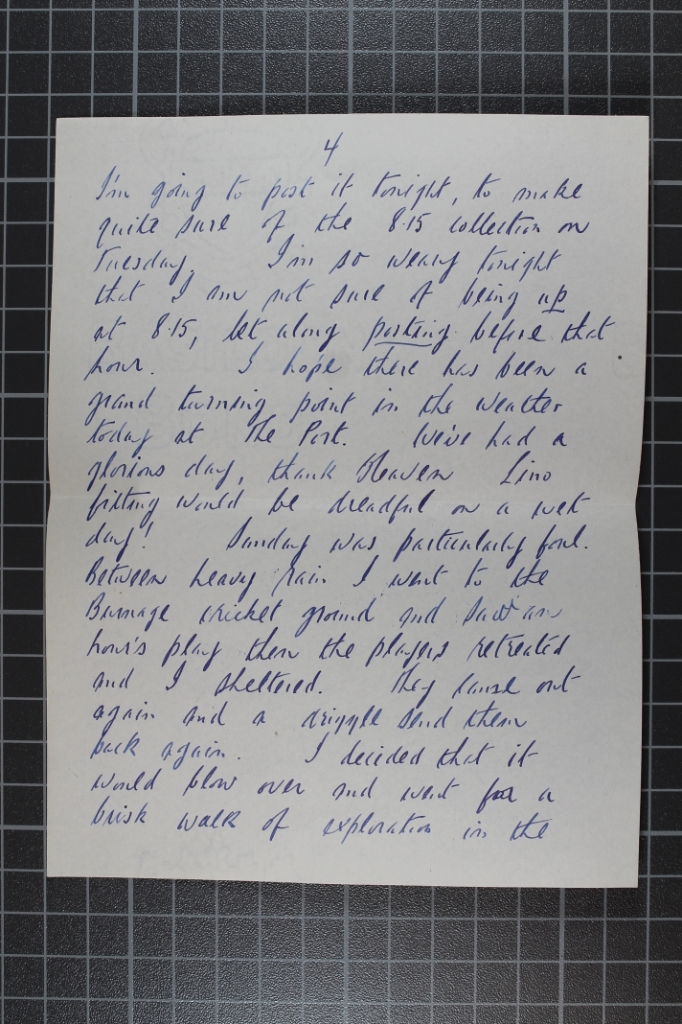 4
I'm going to post it tonight, to make
quite sure of the 8.15 collection on
Tuesday. I'm so weary tonight
that I am not sure of being up
at 8.15, let along posting before that
hour. I hope there has been a
grand turning point in the weather
today at The Port. We've had a
glorious day, thank Heaven Lino
fitting would be dreadful on a wet
day! Sunday was particularly foul.
Between heavy rain I went to the
Burnage cricket ground and saw an
hour's play then the players retreated
and I sheltered. They came out
again and a drizzle send them
back again. I decided that it
would blow over and went for a
brisk walk of exploration in the